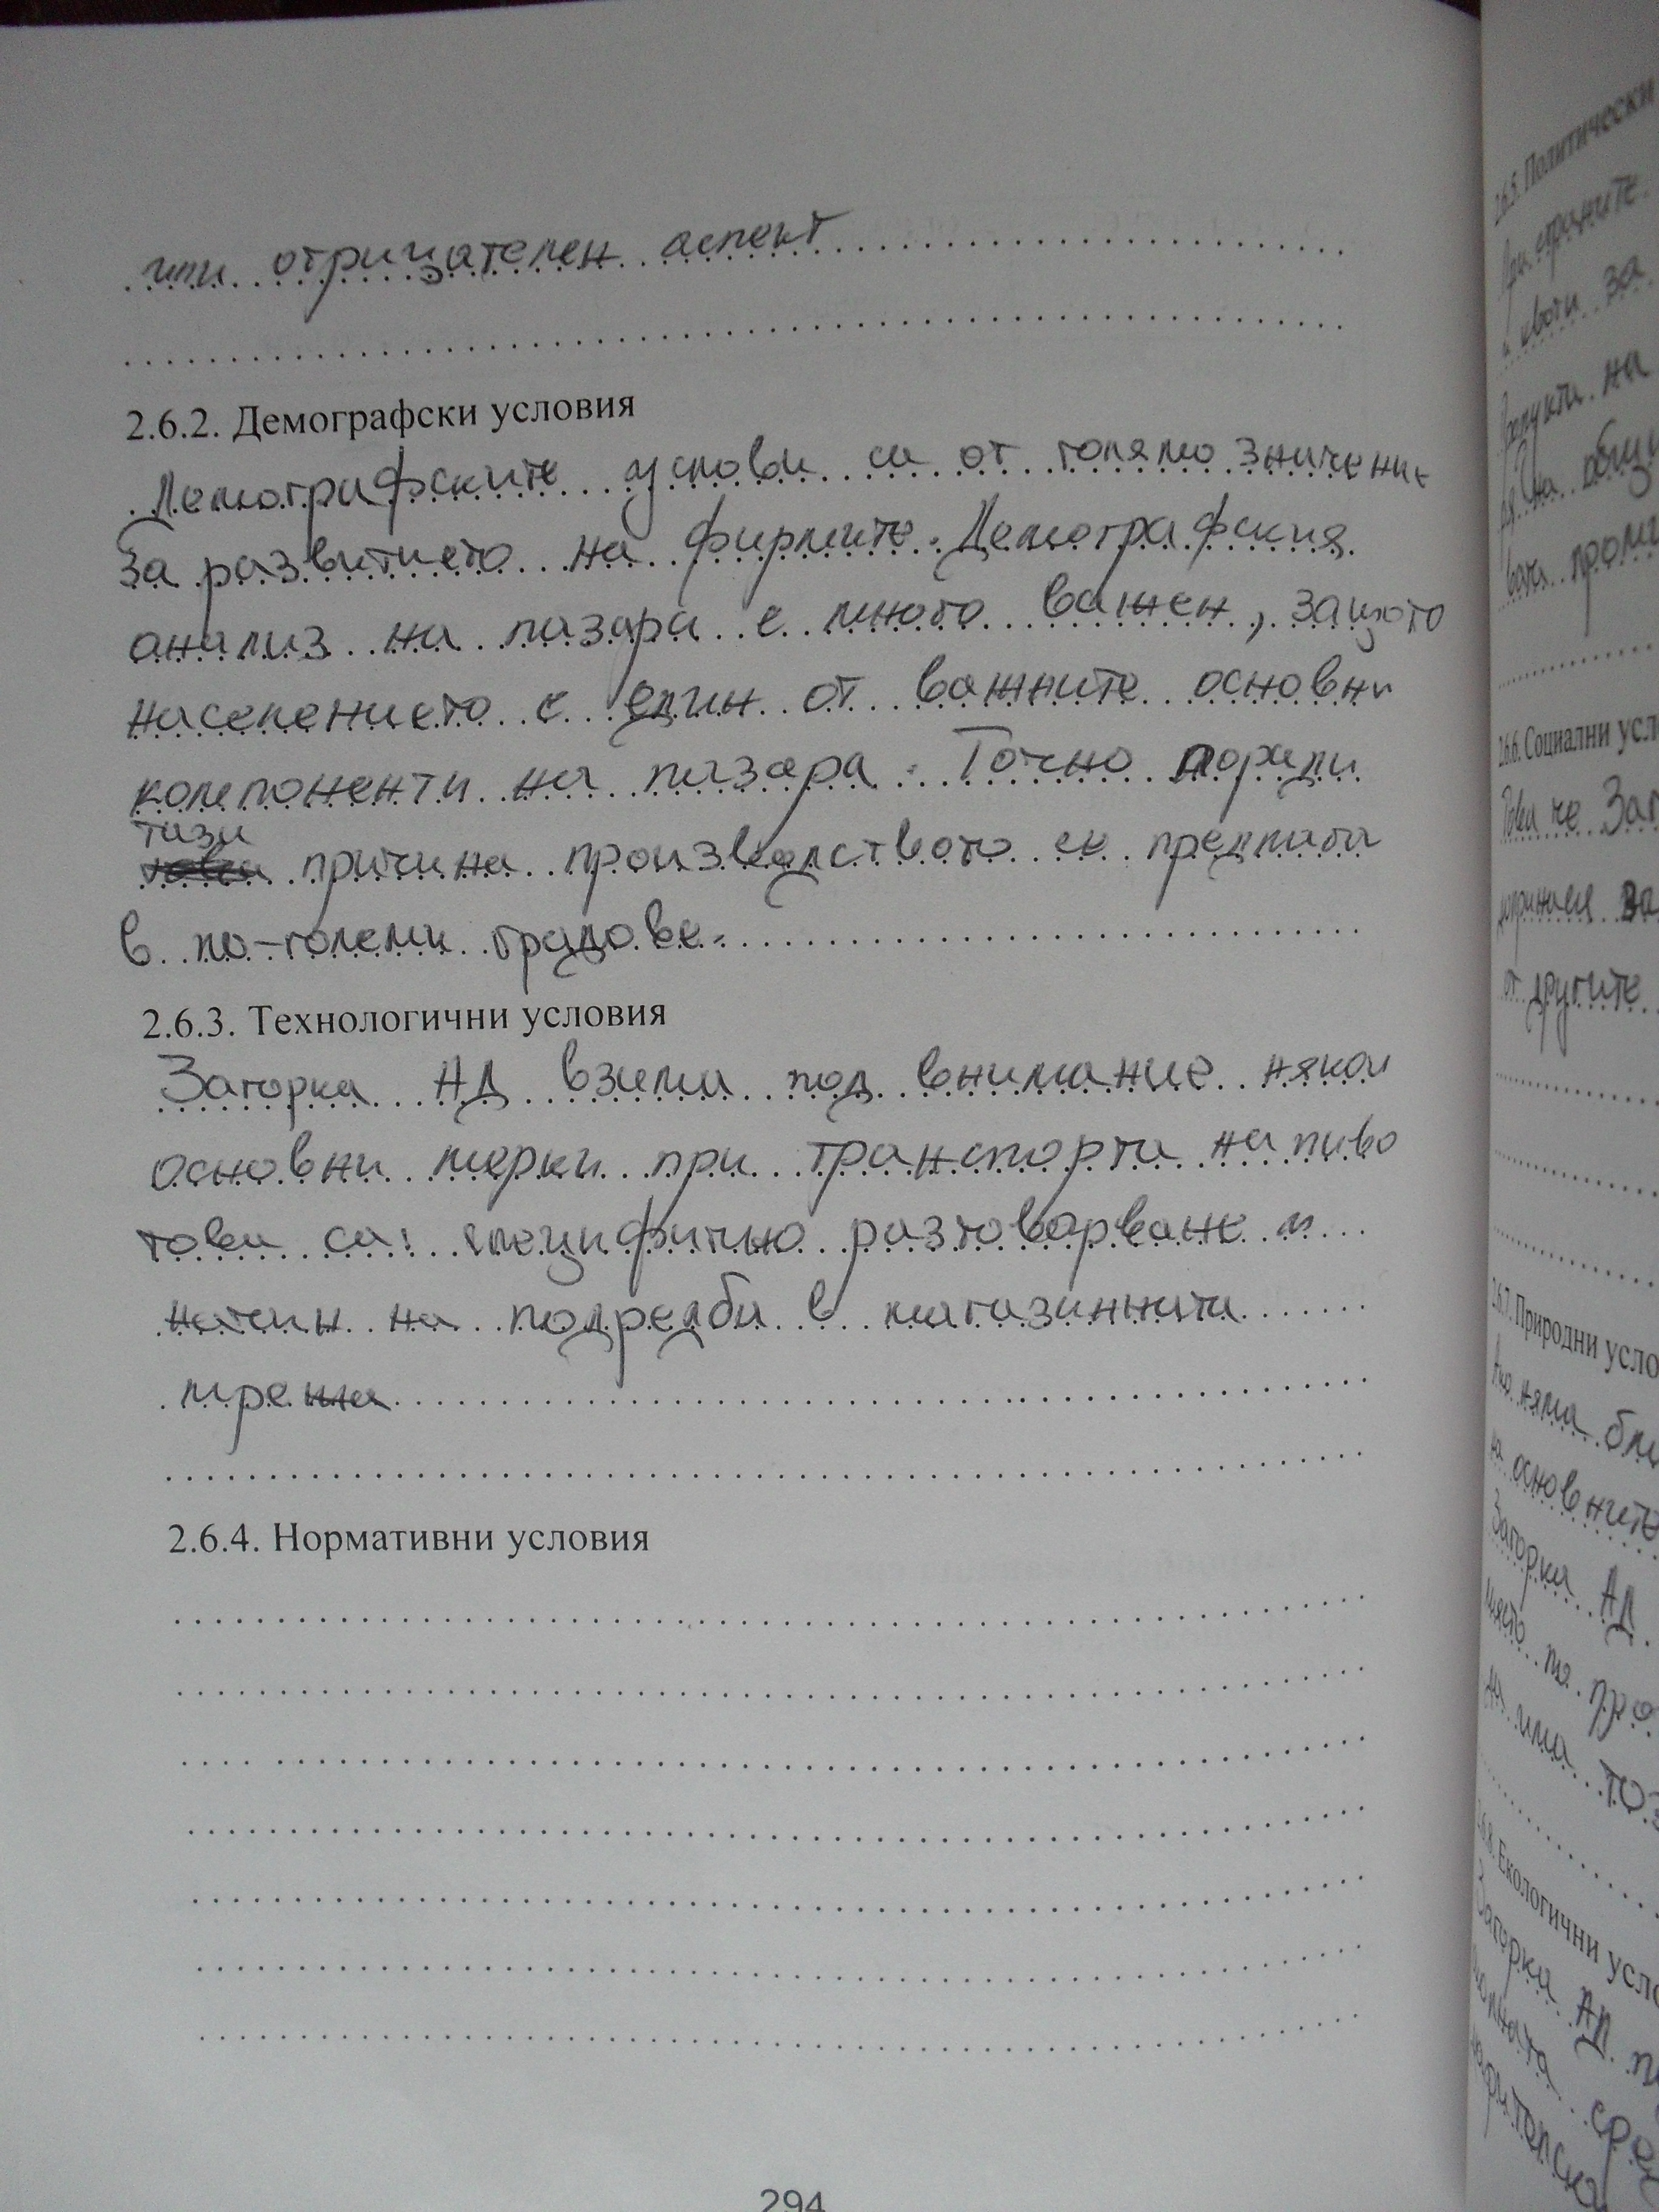 или отрицателен аспект
2.6.2. Демографски условия
Демографските условия са от голямо значение
за развитието на фирмите. Демографския
анализ на пазара е много важен, защото
населението е един от важните основни
компоненти на пазара. Точно поради
тази
причина производството се предлага
в по-големи градове.
2.6.3. Технологични условия
Загорка АД взема под внимание някои
основни мерки при транспорта на пиво
това са: специфично разтоварване и
начин на подредба в магазинната
мрежа
2.6.4. Нормативни условия
294
2.6.5. Политически
при страните
и квоти за
на
на общи
пром
2.6.6. Социални усл
това че Заг
допринася за
от другите
2.6.7. Природни усло
Ако няма бли
на основните
Загорка АД
място по про
на има тоз
2.6.8. Екологични усло
Загорка АД п
околната сре